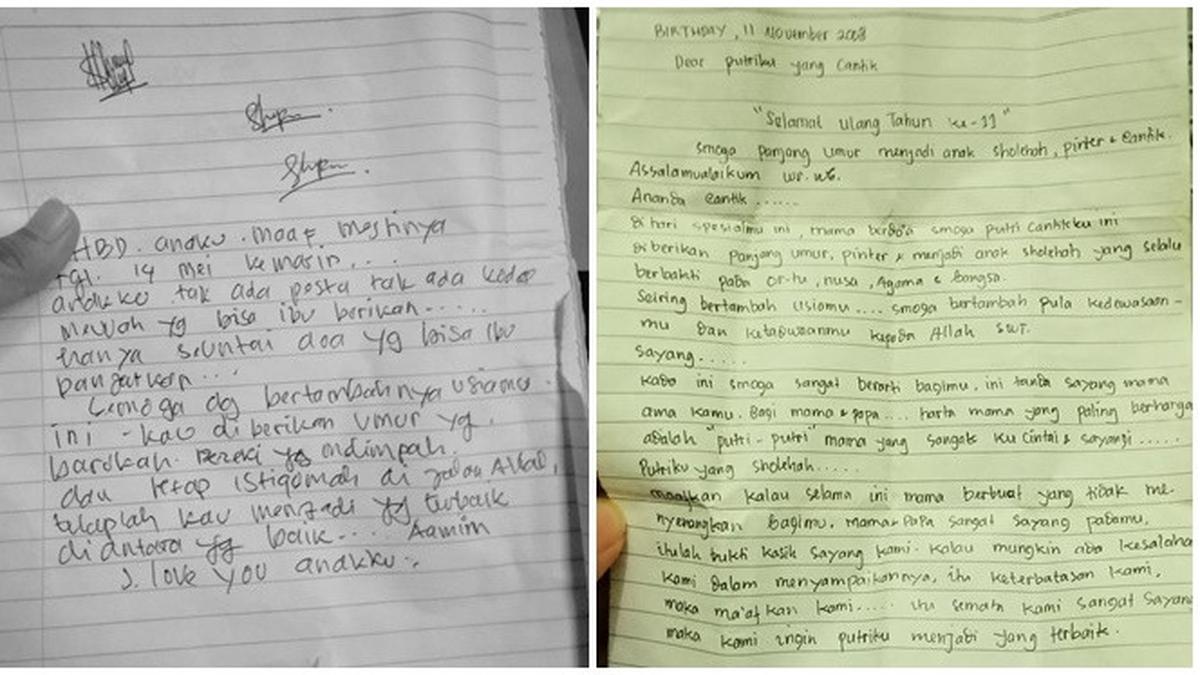 HBD. anakku. maaf mestinya
tgl. 14 mei kemarin...
anakku tak ada pesta tak ada kado
mewah yg bisa ibu berikan......
hanya seuntai doa yg bisa ibu
panjatkan...
Semoga dg bertambahnya usiamu.
ini - kau diberikan umur yg.
barokah. Rezeki yg mlimpah.
dau tetap istiqomah di jalan Allah,
tetaplah kau menjadi yg terbaik
diantara yg baik.... Aamiin
I. love you anakku..
BIRTHDAY, 11 November 2008
Dear putriku yang Cantik
"Selamat ulang Tahun ke-11"
smoga panjang umur menjadi anak sholehah, pinter & cantik.
Assalamualaikum wr. wb.
Ananda cantik......
di hari spesialmu ini, mama berdo'a smoga putri cantikku ini
diberikan panjang umur, pinter & menjadi anak sholehah yang selalu
berbakti pada or-tu, nusa, Agama & bangsa.
Seiring bertambah usiamu.... smoga bertambah pula kedewasaan-
mu dan ketaqwaanmu kepada Allah swt.
Sayang.....
kado ini smoga sangat berarti bagimu, ini tanda sayang mama
ama kamu. Bagi mama & papa.... harta mama yang paling berharga
adalah "putri-putri" mama yang sangat ku cintai & sayangi.....
Putriku yang sholehah.....
maafkan kalau selama ini mama berbuat yang tidak me-
nyenangkan bagimu. mama & papa sangat sayang padamu.
itulah bukti kasih sayang kami. kalau mungkin ada kesalaha
kami dalam menyampaikannya, itu keterbatasan kami,
maka ma'af kan kami..... itu semata kami sangat sayang
maka kami ingin putriku menjadi yang terbaik.